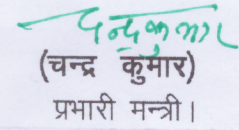 चन्द्रकुमार
(चन्द्र कुमार)
प्रभारी मन्त्री।